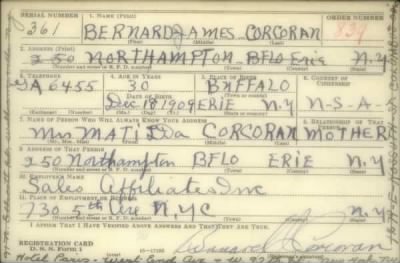 SERIAL NUMBER 1. NAME (Print) ORDER NUMBER
361 BERNARD JAMES CORCORAN 839
(First) (Middle) (Last)
2. ADDRESS (Print)
250 NORTHAMPTON BFLO Erie N.Y
(Number and street or R. F. D. number) (Town) (County) (State)
3. TELEPHONE 4. AGE IN YEARS 5. PLACE OF BIRTH 6. COUNTRY OF CITIZENSHIP
GA 6455 30 BUFFALO
DATE OF BIRTH (Town or county)
Dec 18 1909 ERIE N.Y U-S-A-
(Exchange) (Number) (Mo.) (Day) (Yr.) (State or country)
7. NAME OF PERSON WHO WILL ALWAYS KNOW YOUR ADDRESS 8. RELATIONSHIP OF THAT PERSON
Mrs MATILDA CORCORAN MOTHER
(Mr., Mrs., Miss) (First) (Middle) (Last)
9. ADDRESS OF THAT PERSON
250 Northampton BFLO ERIE N.Y
(Number and street or R. F. D. number) (Town) (County) (State)
10. EMPLOYER'S NAME
Sales Affiliates Inc
11. PLACE OF EMPLOYMENT OR BUSINESS
730 5th Ave NYC
(Number and street or R. F. D. number) (Town) (County) (State)
I AFFIRM THAT I HAVE VERIFIED ABOVE ANSWERS AND THAT THEY ARE TRUE.
REGISTRATION CARD
D. S. S. Form 1 Bernard J Corcoran
Hotel Paris - West End Ave - W. 97th St. New York NY